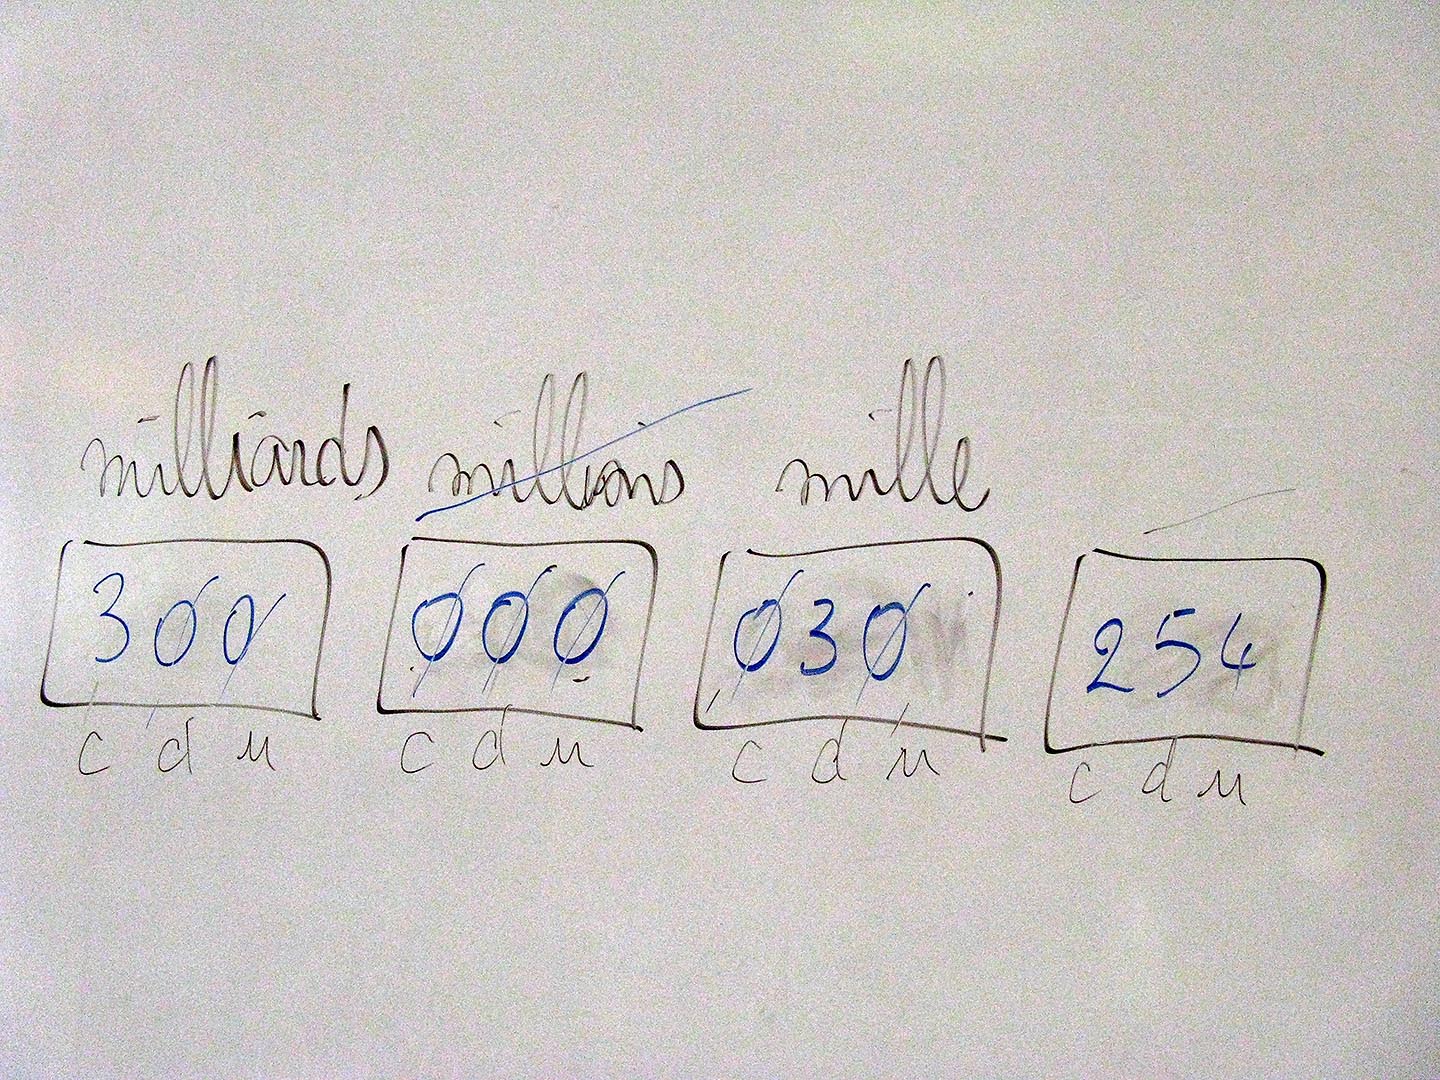 milliards millions mille
300 000 030 254
c d u c d u c d u c d u